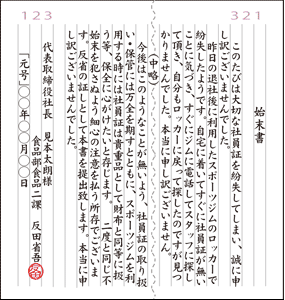 321
123
始末書
このたびは大切な社員証を紛失してしまい、誠に申
し訳ございませんでした。
昨日の退社後に利用したスポーツジムのロッカーで
紛失したようです。自宅に着いてすぐに社員証が無い
ことに気づき、すぐにジムに電話してスタッフに探し
て頂き、自分もロッカーに戻って探したのですが見つ
かりませんでした。本当に申し訳ございません
(中略)
今後はこのようなことが無いよう、社員証の取り扱
い・保管には万全を期すとともに、スポーツジムを利
用する時には社員証は貴重品として財布と同等に扱
う等、保全に心がけたいと存じます。二度と同じ不
始末を犯さぬよう細心の注意を払う所存でございま
す。反省の証しとして本書を提出致します。本当に申
し訳ございませんでした。
代表取締役社長 見本太郎様
食品部食品二課 反田省吾
「元号」〇〇年〇〇月〇〇